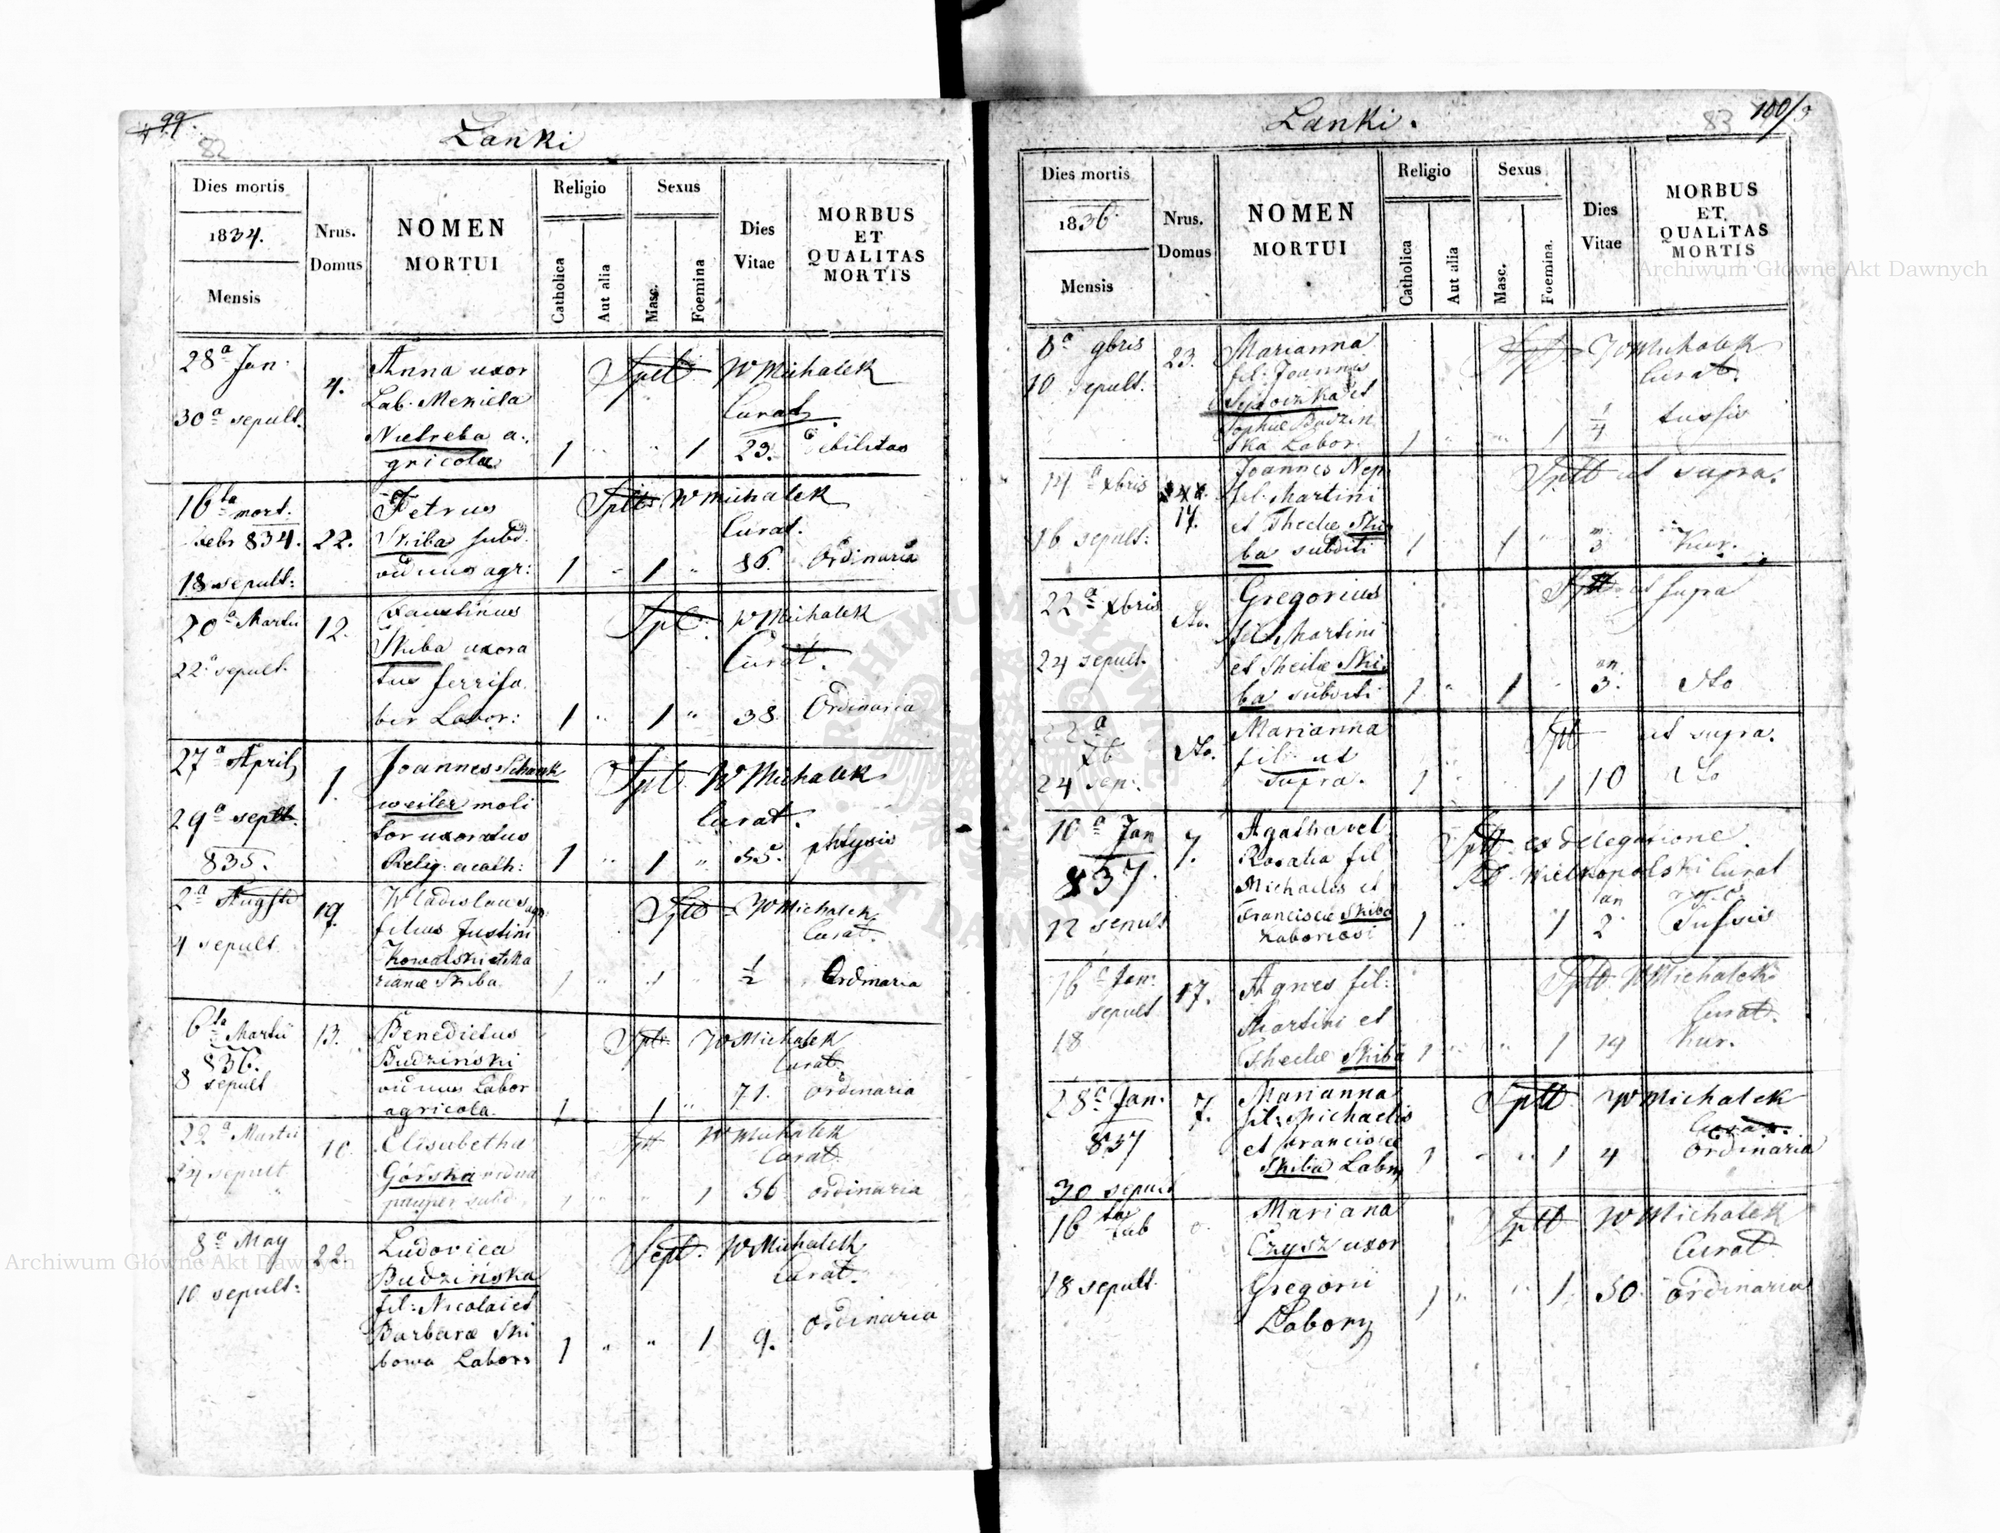 99.
82
Lanki
Dies mortis
1834.
Mensis
Nrus.
Domus
NOMEN
MORTUI
Religio
Catholica
Aut alia
Sexus
Masc.
Foemina
Dies
Vitae
MORBUS
ET
QUALITAS
MORTIS
28a Jan.
30a sepult.
4.
Anna uxor
Lab. Mekiela
Nietreba a.
gricolæ
Splt W Michalek
Curat.
1 " " 1 23. Debilitas
16ta mort.
Febr 834.
18 sepult:
22.
Petrus
Skiba subd.
viduus agr:
Splt W Michalek
Curat.
1 " 1 " 86. Ordinaria
20a Martii
22a sepult.
12.
Faustinus
Skiba uxora
tus ferrifa
ber Labor:
Splt. W Michalek
Curat.
1 " 1 " 38 Ordinaria
27a April
29a seplt.
835.
1.
Joannes Schwek
weiler moli
tor uxoratus
Relig. acath:
Splt. W Michalek
Curat.
1 " 1 " 55. phtysis
2a Augsti
4 sepult
19.
Wladislaus
filius Justini
Kowalski et Ma
rianæ Skiba
Splt W Michalek
Curat.
1 " 1 " 1/2 Ordinaria
6ta Martii
836.
8 sepult
13.
Benedictus
Budziński
viduus Labor
agricola.
Splt. W Michalek
Curat.
1 " 1 " 71. ordinaria
22a Martii
24 sepult
10.
Elisabetha
Górska vidua
pauper subd.
Splt W Michalek
Curat.
1 " " 1 56 ordinaria
8a May
10 sepult:
22.
Ludovica
Budzińska
fil: Nicolai et
Barbaræ Ski
bowa Labors
Sept. W Michalek
Curat.
1 " " 1 9. Ordinaria
83
100/3
Lanki.
Dies mortis
1836.
Mensis
Nrus.
Domus
NOMEN
MORTUI
Religio
Catholica
Aut alia
Sexus
Masc.
Foemina.
Dies
Vitae
MORBUS
ET
QUALITAS
MORTIS
8a 9bris
10 sepult.
23.
Marianna
fil: Joannis
et
Sophiæ Budzin
ska Labor.
Splt W Michalek
Curat.
1 " " 1 1/4 tussis
14a xbris
16 sepult:
17.
Joannes Nep.
fil. Martini
et Theclæ Ski
ba subditi
Splt ut supra.
1 1 3 Kur.
22a xbris
24 sepult.
dto.
Gregorius
fil. Martini
et Theclæ Ski
ba subditi
Splt ut supra
1 " 1 " 3. dto
22a
Xb
24 sep:
dto.
Marianna
fil: ut
supra.
Splt ut supra.
1 1 10 dto
10a Jan
837.
12 sepult
7.
Agatha vel
Rosalia fil
Michaelis et
Franciscæ Skiba
Laboriosi
Splt. ex delegatione
Wielkopolski Curat
1 " 1 2 Tussis
16a Jan:
sepult
18
17.
Agnes fil:
Martini et
Theclæ Skiba
Splt W Michalek
Curat.
1 " " 1 14 Kur.
28a Jan.
837
30 sepult
7.
Marianna
fil. Michaelis
et Franciscæ
Skiba Labor
Splt W Michalek
Curat.
1 " " 1 4 Ordinaria
16ta Feb
18 sepult.
Mariana
Czysz uxor
Gregorii
Labory
Splt W Michalek
Curat
1 " " 1. 50. ordinaria
Archiwum Główne Akt Dawnych
Archiwum Główne Akt Dawnych
ARCHIWUM GŁÓWNE AKT DAWNYCH